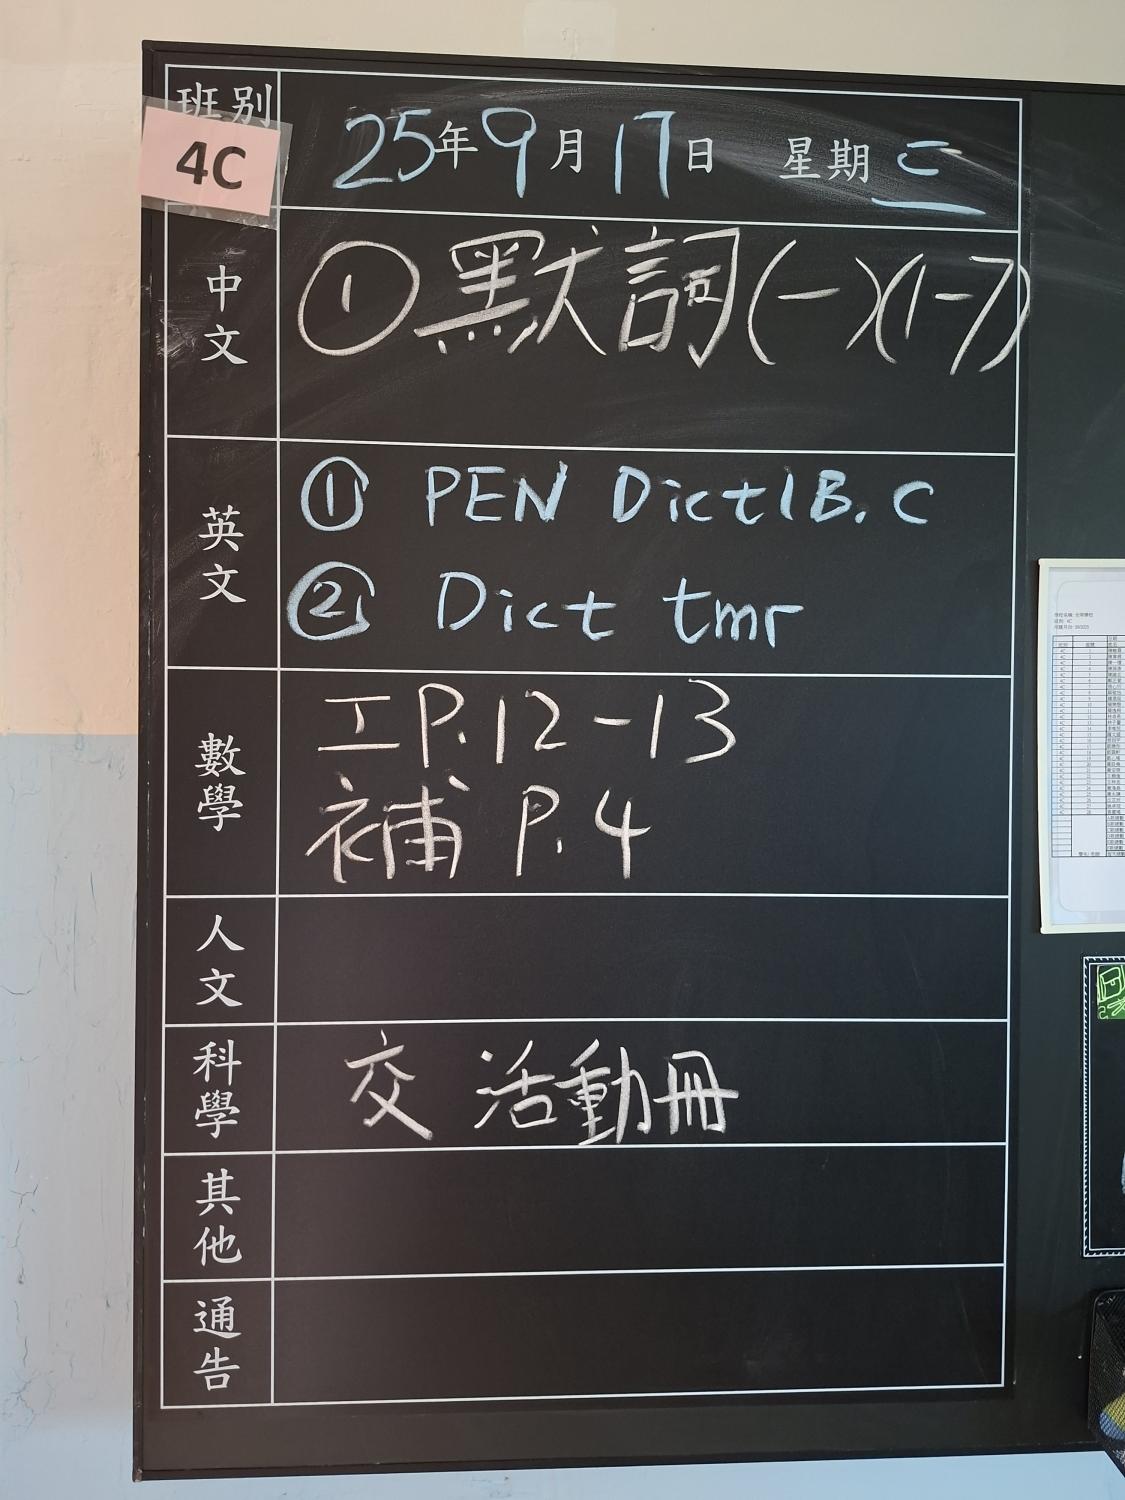 班別
4C
25年9月17日 星期三
中文
① 默詞(一)(1-7)
英文
① PEN Dict1B.C
② Dict tmr
數學
工P.12-13
補 P.4
人文
科學
交 活動冊
其他
通告